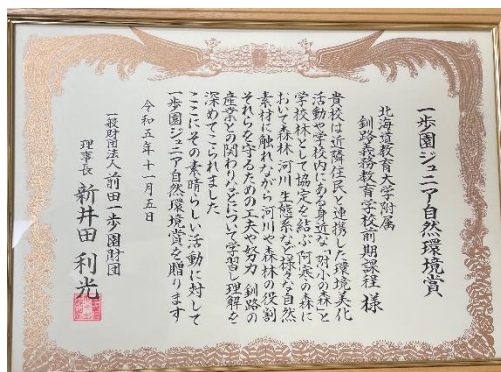 一歩園ジュニア自然環境賞
北海道教育大学附属
釧路義務教育学校前期課程 様
貴校は近隣住民と連携した環境美化
活動や学校内にある身近な「附小の森」と
学校林として協定を結ぶ「阿寒の森」に
おいて森林 河川 生態系など様々な自然
素材に触れながら河川や森林の役割
それらを守るための工夫や努力 釧路の
産業との関わりなどについて学習し理解を
深めてこられました
ここにその素晴らしい活動に対して
一歩園ジュニア自然環境賞を贈ります
令和五年十一月五日
一般財団法人 前田一歩園財団
理事長 新井田 利光